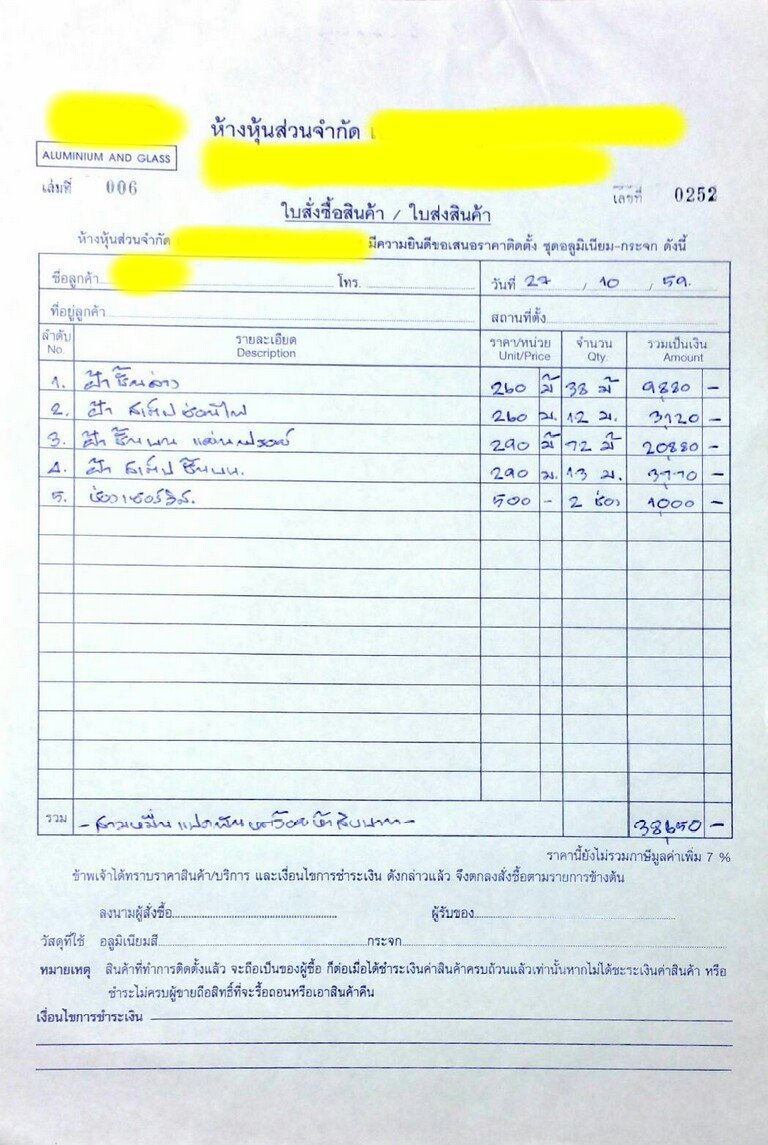 ห้างหุ้นส่วนจำกัด
ALUMINIUM AND GLASS
เล่มที่ 006
เลขที่ 0252
ใบสั่งซื้อสินค้า / ใบส่งสินค้า
ห้างหุ้นส่วนจำกัด มีความยินดีขอเสนอราคาติดตั้ง ชุดอลูมิเนียม-กระจก ดังนี้
ชื่อลูกค้า โทร. วันที่ 27 / 10 / 59.
ที่อยู่ลูกค้า สถานที่ตั้ง
ลำดับ รายละเอียด ราคา/หน่วย จำนวน รวมเป็นเงิน
No. Description Unit/Price Qty. Amount
1. ฝ้า ชั้นล่าง 260 38 9880 -
2. ฝ้า สเต็ป ซ่อนไฟ 260 ม. 12 ม. 3120 -
3. ฝ้า ชั้นบน แผ่นฟรอยด์ 290 72 20880 -
4. ฝ้า สเต็ป ชั้นบน. 290 ม. 13 ม. 3770 -
5. ช่องเซอร์วิส. 500 - 2 ช่อง 1000 -
รวม - สามหมื่นแปดพันหกร้อยห้าสิบบาท - 38650 -
ราคานี้ยังไม่รวมภาษีมูลค่าเพิ่ม 7 %
ข้าพเจ้าได้ทราบราคาสินค้า/บริการ และเงื่อนไขการชำระเงิน ดังกล่าวแล้ว จึงตกลงสั่งซื้อตามรายการข้างต้น
ลงนามผู้สั่งซื้อ ผู้รับของ
วัสดุที่ใช้ อลูมิเนียมสี กระจก
หมายเหตุ สินค้าที่ทำการติดตั้งแล้ว จะถือเป็นของผู้ซื้อ ก็ต่อเมื่อได้ชำระเงินค่าสินค้าครบถ้วนแล้วเท่านั้นหากไม่ได้ชะระเงินค่าสินค้า หรือ
ชำระไม่ครบผู้ขายถือสิทธิ์ที่จะรื้อถอนหรือเอาสินค้าคืน
เงื่อนไขการชำระเงิน